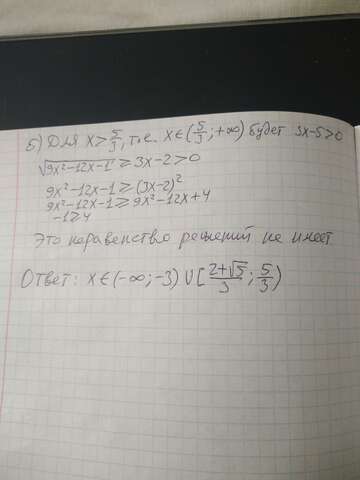 Б) Для x>5/3, т.е. x∈(5/3; +∞) будет 3x-5>0
√(9x²-12x-1) ≥ 3x-2>0
9x²-12x-1 ≥ (3x-2)²
9x²-12x-1 ≥ 9x²-12x+4
-1 ≥ 4
Это неравенство решений не имеет
Ответ: x∈(-∞; -3) ∪ [(2+√5)/3; 5/3)